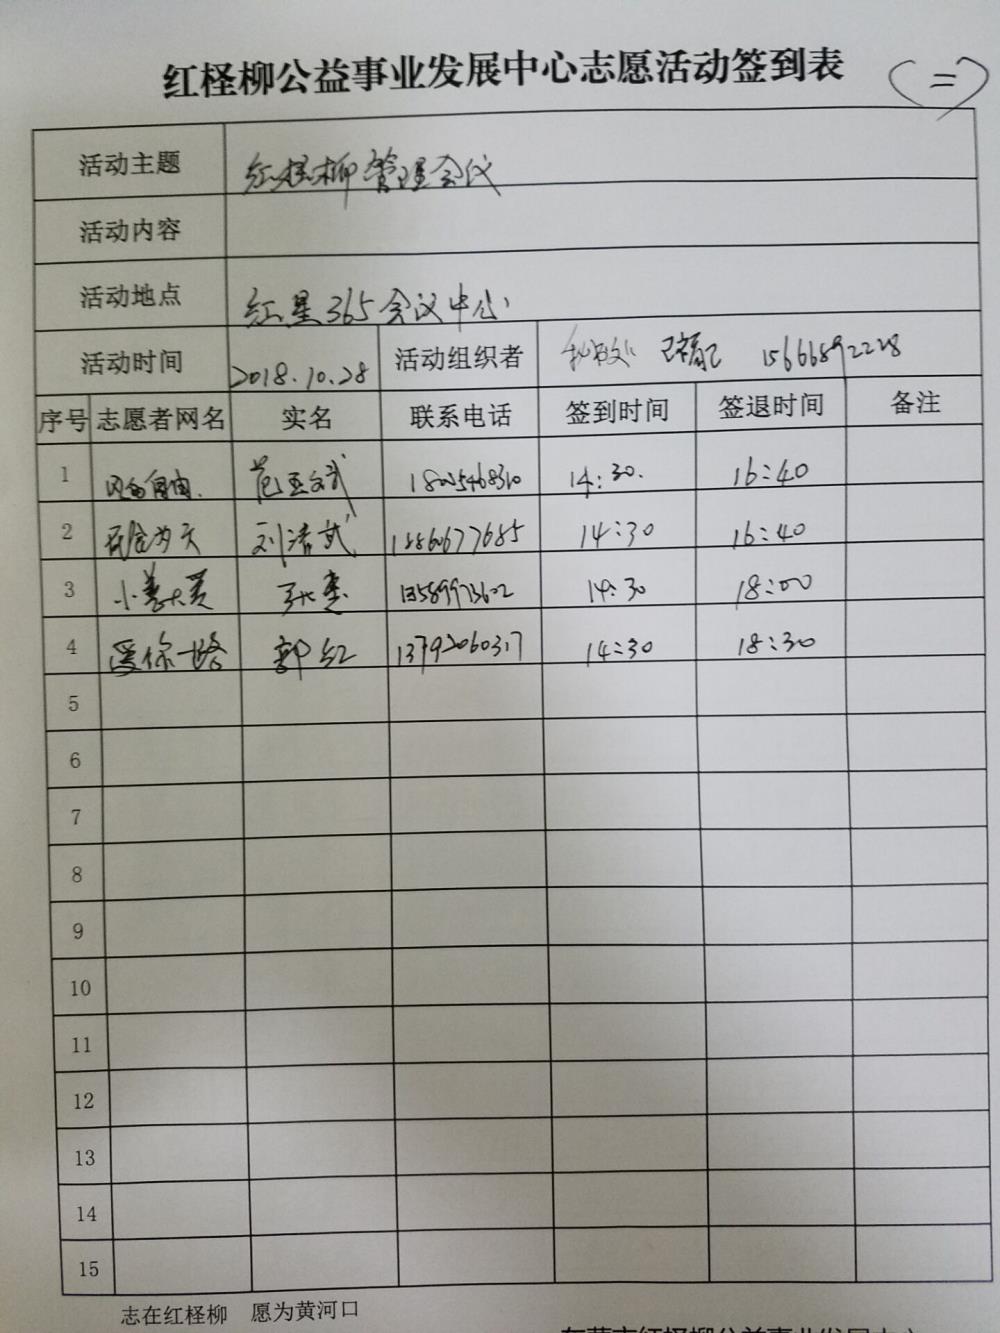 红柽柳公益事业发展中心志愿活动签到表 (二)
活动主题 红柽柳管理会议
活动内容
活动地点 红星365会议中心
活动时间 2018.10.28 活动组织者 秘书处 15666892228
序号 志愿者网名 实名 联系电话 签到时间 签退时间 备注
1 自由. 14:30. 16:40
2 为天 刘洁武 18860677685 14:30 16:40
3 小善大美 13589973602 14:30 18:00
4 爱你一路 郭红 13792060317 14:30 18:30
5
6
7
8
9
10
11
12
13
14
15
志在红柽柳 愿为黄河口
东营市红柽柳公益事业发展中心